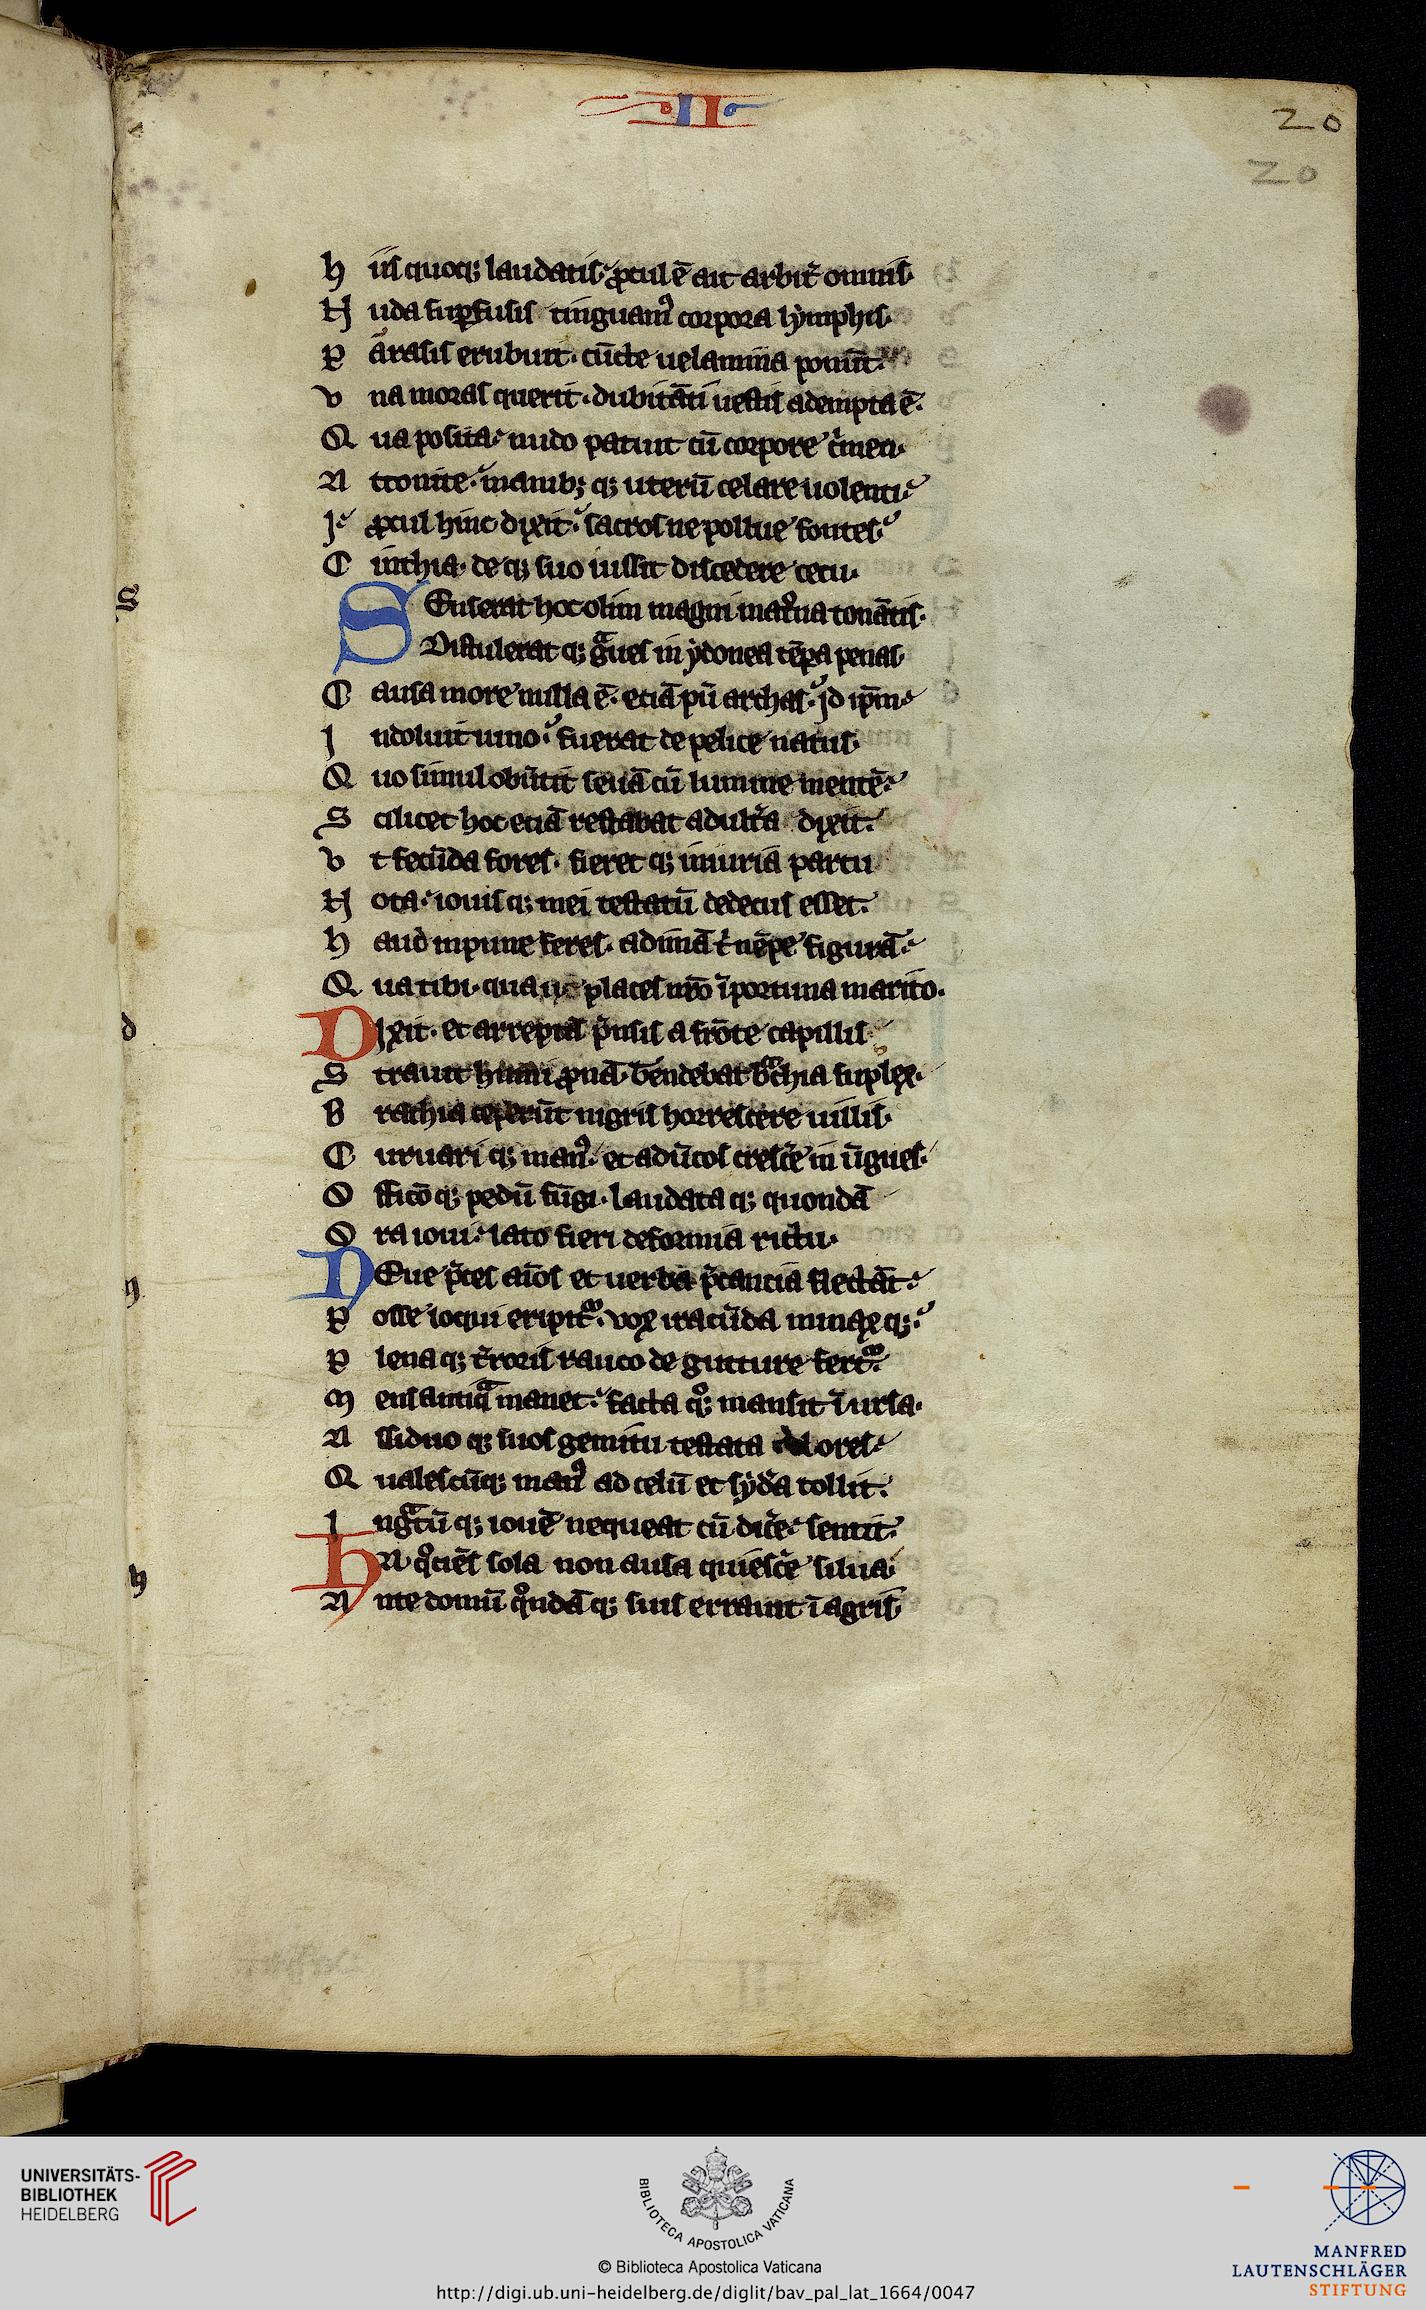 II
20
20
h iis quoq; laudatis. ꝓcul ē ait arbit̄ om̄is.
N uda suꝑfusis tinguam᷒ corpora lymphis.
P ārasis erubuit. cūcte uelamina ponūt.
V na moras querit. dubitāti uestis adempta ē.
Q ua posita. nudo patuit cū corpore c̄men.
A ttonite. manibꝫ qꝫ uterū celare uolenti.
I. ꝓcul hinc dixit. sacros ne pollue fontes.
C inthia. de qꝫ suo iussit discedere cetu.
S Enserat hoc olim magni mat̄na tonātis.
Distulerat qꝫ gᵃues in ydonea tēpa penas.
C ausa more nulla ē. etiā pū archas. id ip̄m.
I ndoluit iuno. fuerat de pelice natus.
Q uo simul obūtit seuā cū lumine mentē.
S cilicet hoc etiā restabat adult̄a dixit.
V t fecūda fores. fieret qꝫ iniuria partu
N ota. iouis qꝫ mei testatū dedecus esset.
h aud inpune feres. adimā t̄ nēpe figurā.
Q ua tibi. qua places nr̄o īportuna marito.
D Ixit. et arreptā p̄nsis a frōte capillis.
S trauit humi ꝓnā. tendebat bᵃchia suplex.
B rachia ceperūt nigris horrescere uillis.
C uruari qꝫ man᷒. et adūcos cresc̄e in ūgues.
O fficō qꝫ pedū fūgi. laudata qꝫ quondā
O ra ioui. lato fieri deformia rictu.
N Eue p̄ces aīos et uerba p̄cantia flectāt.
P osse loqui eripit᷑. vox iracūda minax qꝫ.
P lena qꝫ t̄roris rauco de gutture fert᷑.
M ens antiqᵃ manet. facta qͦꝫ mansit ī ursa.
A ssiduo qꝫ suos gemitu testata dolores.
Q ualescūqꝫ man᷒ ad celū et syd̄a tollit.
I ngᵃtū qꝫ iouē nequeat cū dic̄e. sentit.
h A. qͦciēs sola non ausa quiesc̄e silua
A nte domū qͦndā qꝫ suis errauit ī agris
S
d
n
h
UNIVERSITÄTS-
BIBLIOTHEK
HEIDELBERG
BIBLIOTECA APOSTOLICA VATICANA
© Biblioteca Apostolica Vaticana
http://digi.ub.uni-heidelberg.de/diglit/bav_pal_lat_1664/0047
MANFRED
LAUTENSCHLÄGER
STIFTUNG